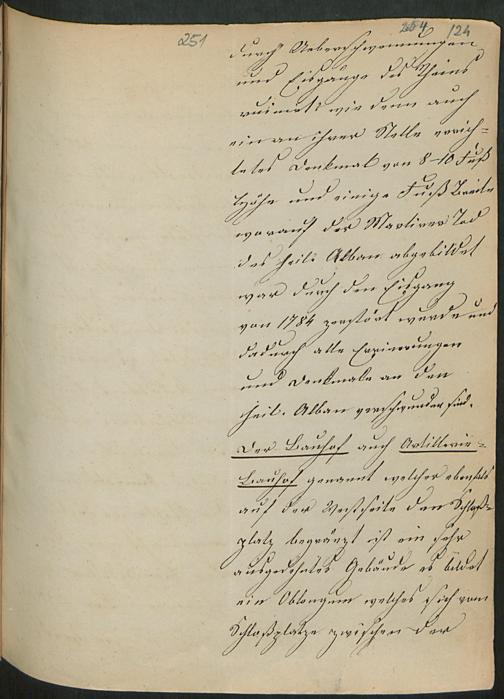 251
264 124
durch Ueberschwemmungen
und Eisgänge des Rheins
ruinirt wie denn auch
ein an ihrer Stelle errich-
tetes Denkmal von 8-10 Fuß
Höhe und einige Fuß Breite
worauf der Martirer Tod
des heil. Alban abgebildet
war durch den Eisgang
von 1784 zerstört wurde und
dadurch alle Erinnerungen
und Denkmale an den
heil. Alban verschwunden sind.
Der Bauhof auch Artillerie-
Bauhof genannt welcher ebenfals
auf der Westseite den Schloß-
platz begränzt ist ein sehr
ausgedehntes Gebäude es bildet
ein Oblongum welches sich vom
Schloßplatze zwischen der